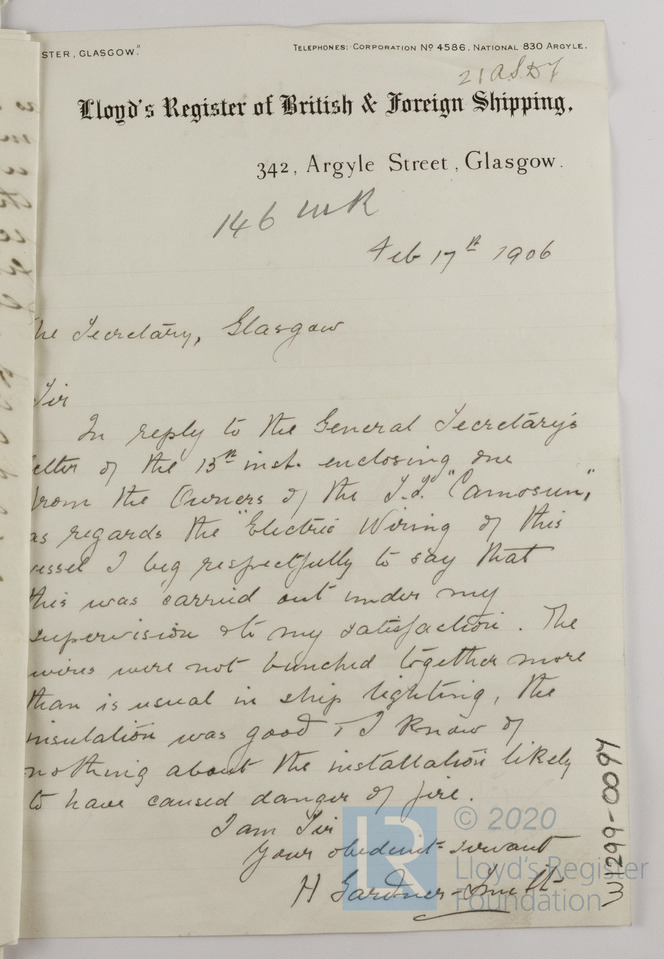 STER, GLASGOW."
TELEPHONES: CORPORATION Nº 4586, NATIONAL 830 ARGYLE.
Lloyd's Register of British & Foreign Shipping,
342, Argyle Street, Glasgow.
146
Feb 17th 1906
he Secretary, Glasgow
Sir
In reply to the General Secretary's
etter of the 15th inst. enclosing one
from the Owners of the S.S. "Camosun,"
as regards the "Electric Wiring of this
vessel I beg respectfully to say that
this was carried out under my
supervision & to my satisfaction. The
wires were not bunched together more
than is usual in ship lighting, the
insulation was good & I know of
nothing about the installation likely
to have caused danger of fire.
I am Sir
Your obedient servant
H Gardner-Smith
© 2020
Lloyd's Register
Foundation
W299-0064